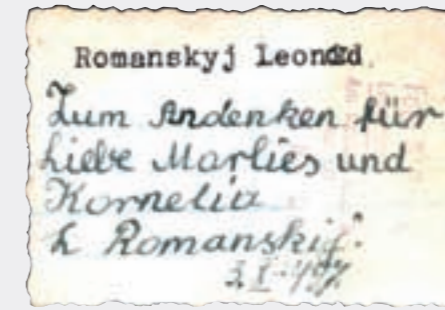 Romanskyj Leonid
Zum Andenken für
Liebe Marlies und
Kornelia
L Romanskij.